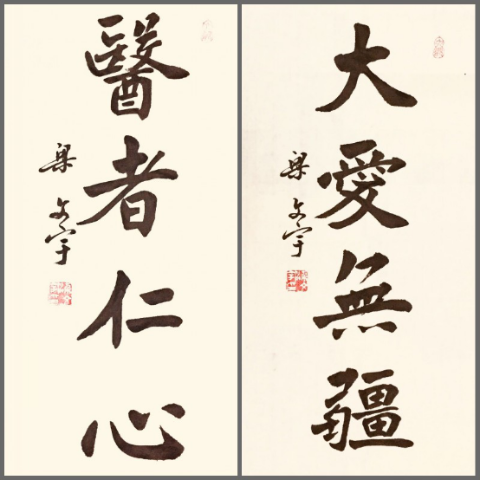 醫者仁心
梁文宇
大愛無疆
梁文宇